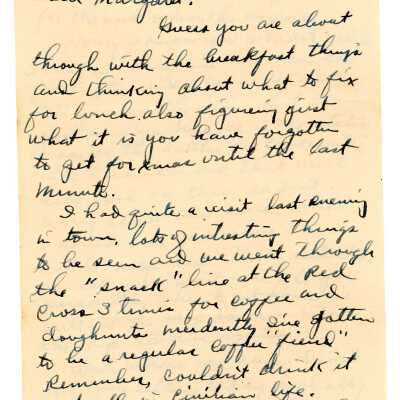 Dear Margaret:
Guess you are about
through with the breakfast things
and thinking about what to fix
for lunch also figuring just
what it is you have forgotten
to get for xmas until the last
minute.
I had quite a visit last evening
in town, lots of intresting things
to be seen and we went through
the "snack" line at the Red
Cross 3 times for coffee and
doughnuts incidently I've gotten
to be a regular coffee "fiend"
Remember, couldn't drink it
in civilian life.